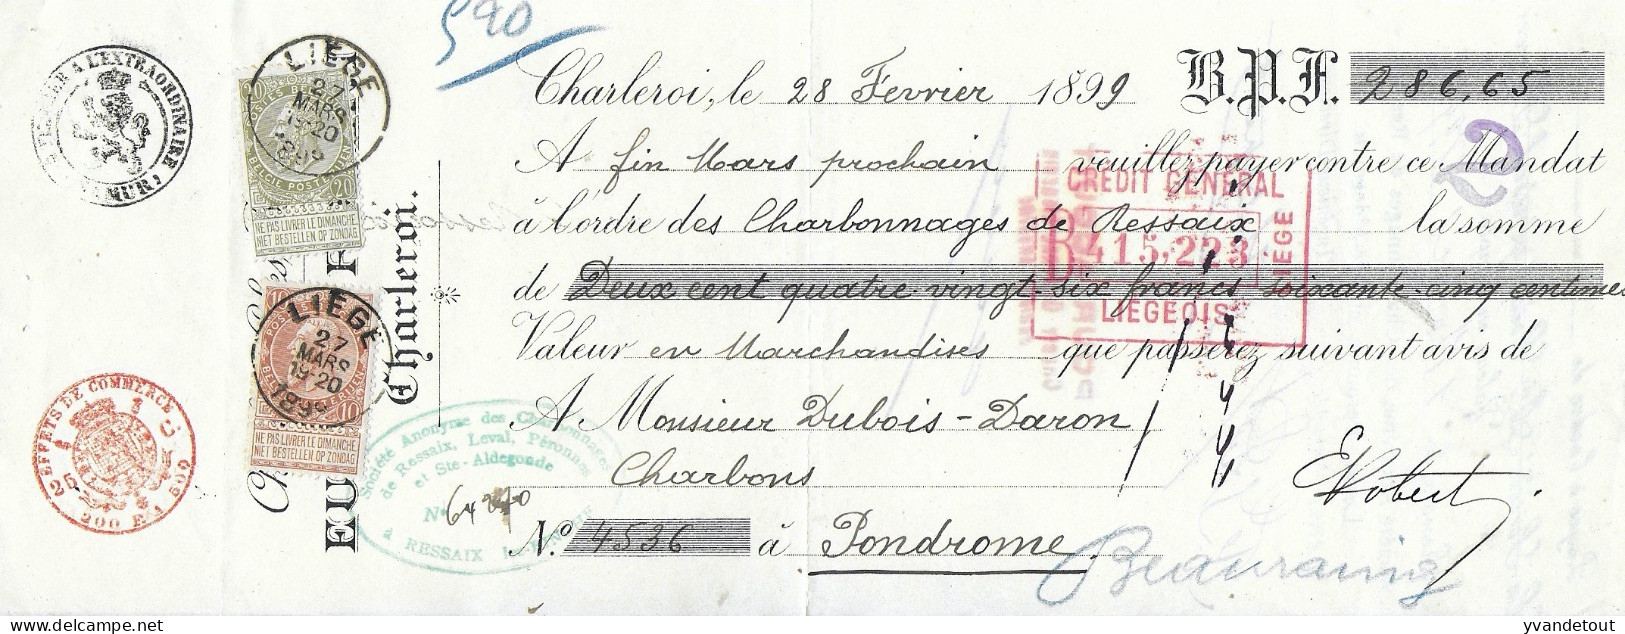 590
Charleroi, le 28 Février 1899 B.P.F. 286,65
A fin Mars prochain veuillez payer contre ce Mandat
à l'ordre des Charbonnages de Ressaix la somme
de Deux cent quatre-vingt six francs soixante-cinq centimes
Valeur en Marchandises que passerez suivant avis de
A Monsieur Dubois-Daron
Charbons
N° 4536 à Pondrome.
ERobert
Beauraing
2
CREDIT GENERAL
415,223
LIEGEOIS
LIEGE
A L'EXTRAORDINAIRE
NAMUR
EFFETS DE COMMERCE
200 F
LIEGE
27
MARS
19-20
1899
20 POSTES BELGES 20
BELGIE POSTERIJEN
NE PAS LIVRER LE DIMANCHE
NIET BESTELLEN OP ZONDAG
LIEGE
27
MARS
19-20
1899
10
10
NE PAS LIVRER LE DIMANCHE
NIET BESTELLEN OP ZONDAG
Charleroi.
Société Anonyme des Charbonnages
de Ressaix, Leval, Péronnes
et Ste-Aldegonde
N°
à RESSAIX
yvandetout